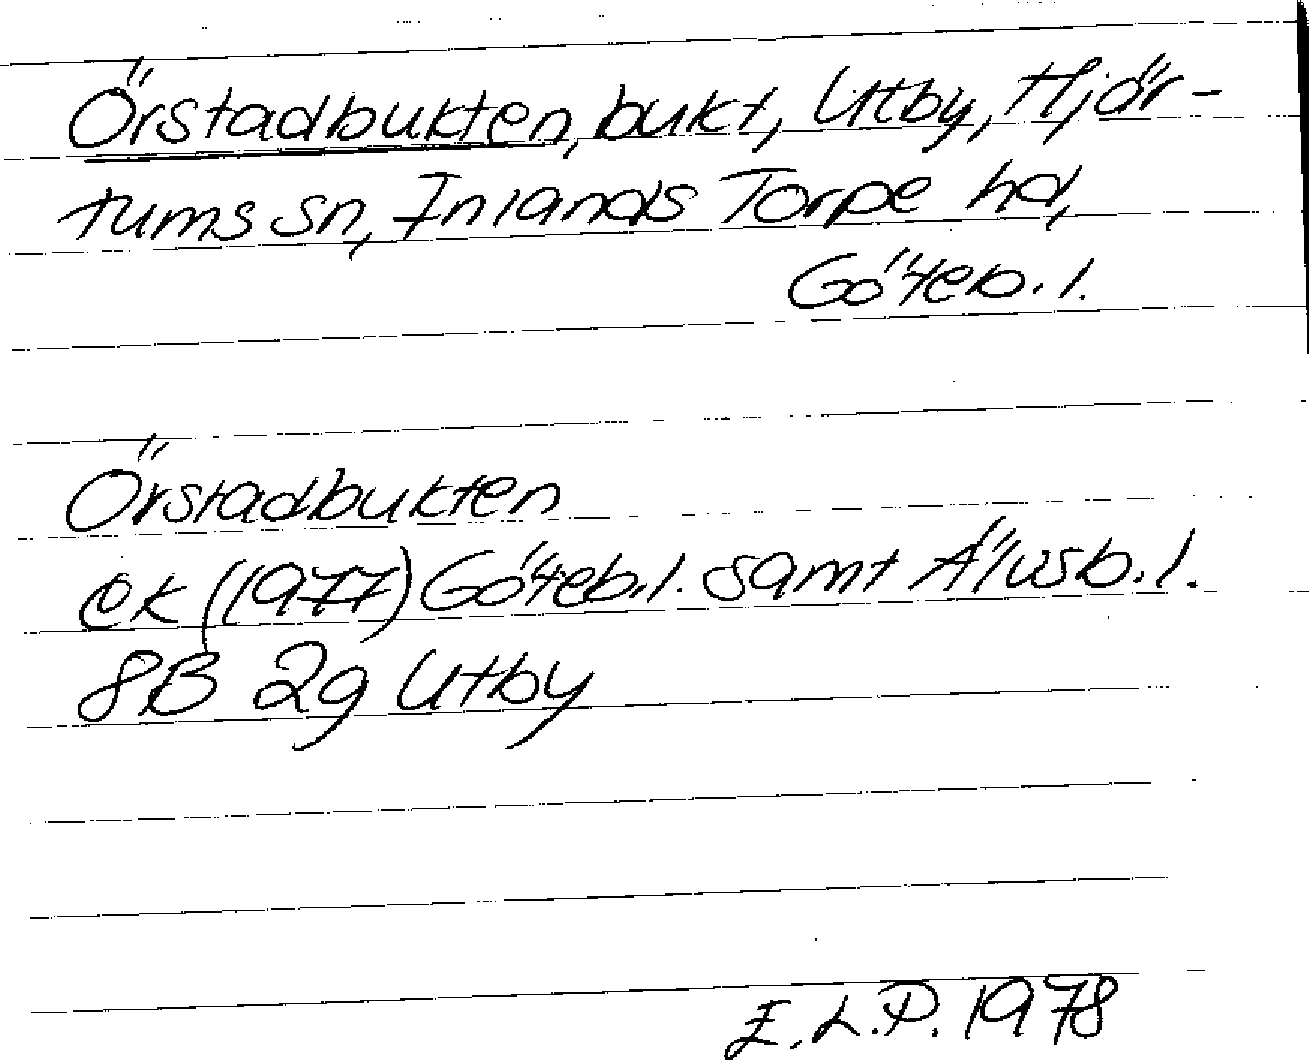 Örstadbukten, bukt, Utby, Hjär-
tums sn, Inlands Torpe hd,
Göteb. l.
Örstadbukten
ek (1977) Göteb. l. samt Älvsb. l.
8B 2g Utby
E. L. P. 1978